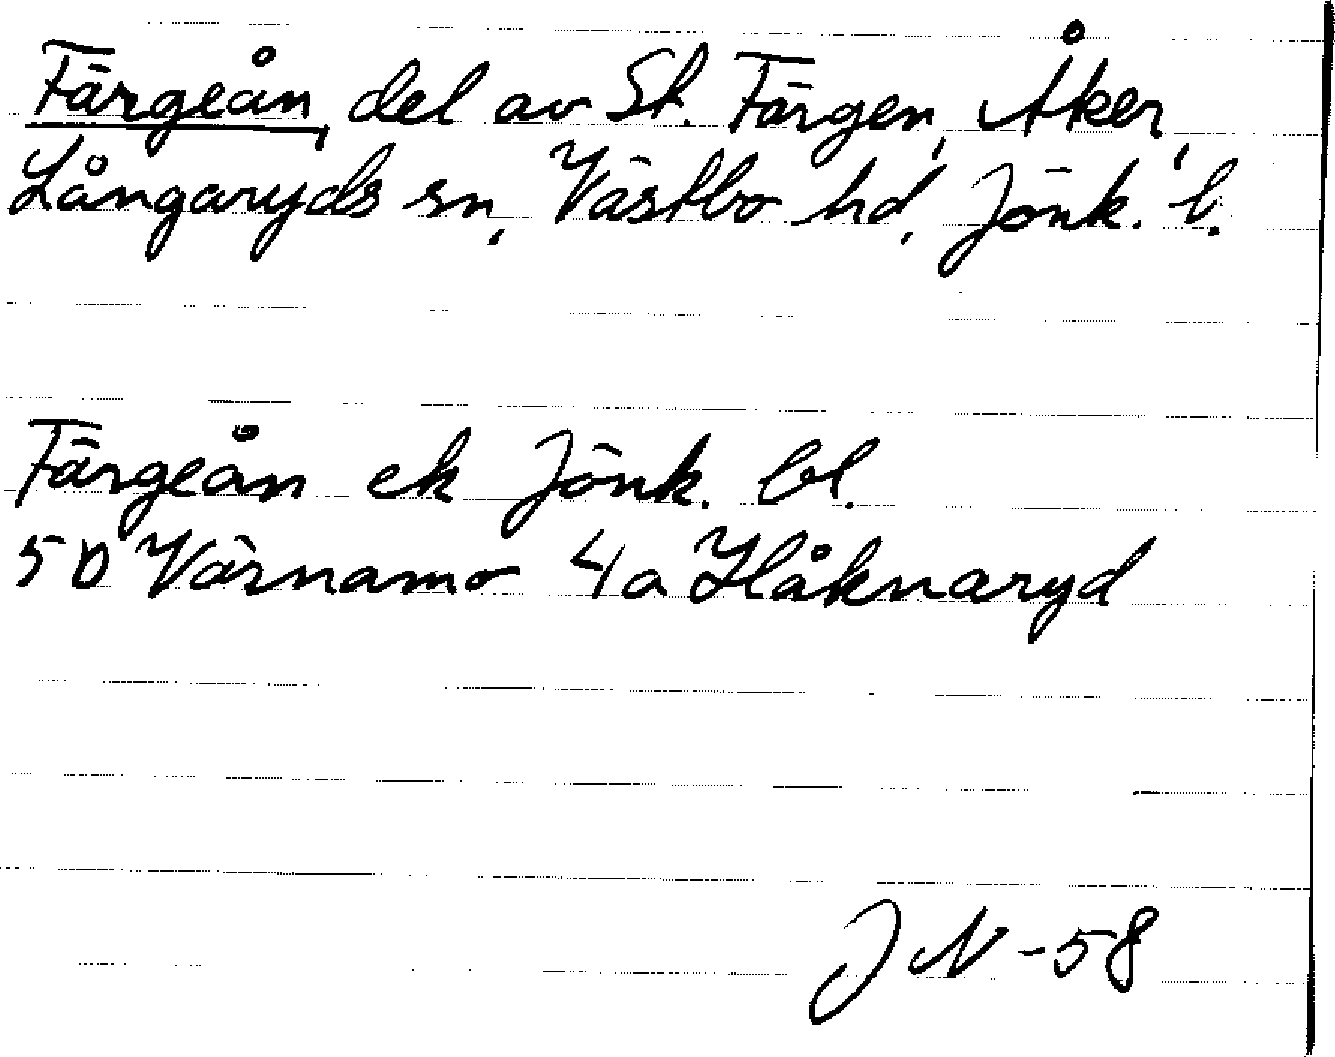 Färgeån, del av St. Färgen, Åker,
Långaryds sn, Västbo hd, Jönk. l.
Färgeån ek Jönk. bl.
5D Värnamo 4a Håknaryd
JN -58